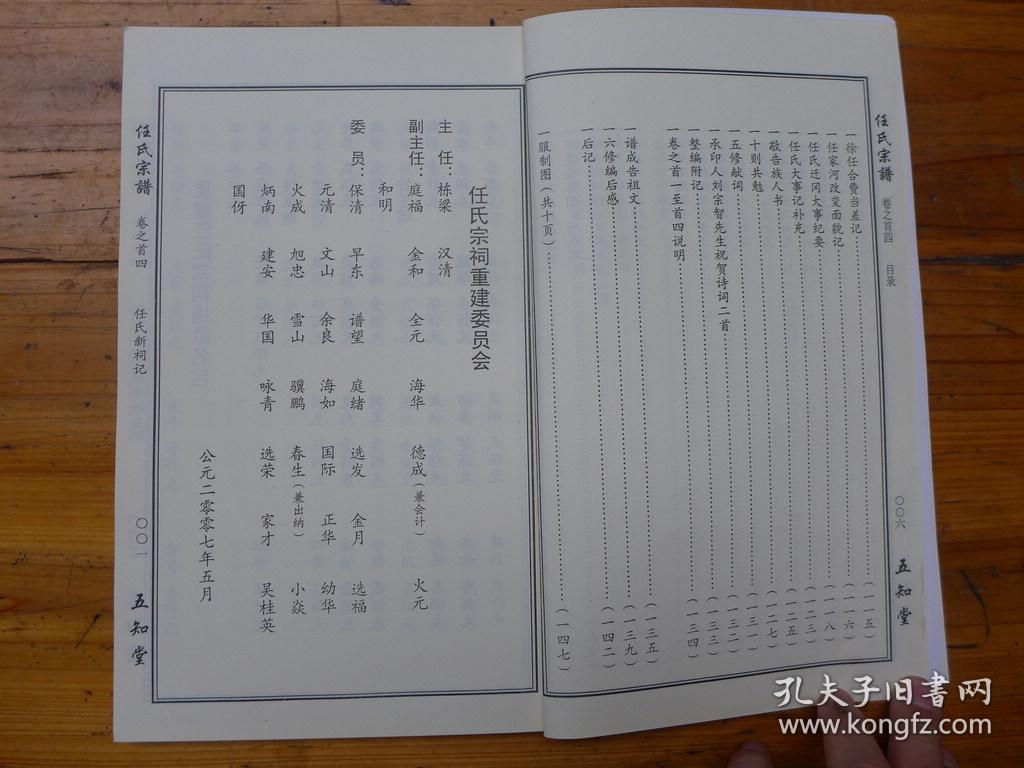 任氏宗譜 卷之首四 目录 〇〇六 五知堂
一 徐任合赍当差记……（一一五）
一 任家河改变面貌记……（一一六）
一 任氏迁冈大事纪要……（一一八）
一 任氏大事记补充……（一二三）
一 敬告族人书……（一二五）
一 十则共勉……（一二七）
一 五修献词……（一三一）
一 承印人刘宗智先生祝贺诗词二首……（一三二）
一 整编附记……（一三三）
一 卷之首一至首四说明……（一三四）
一 谱成告祖文……（一三五）
一 六修编后感……（一三九）
一 后记……（一四二）
一 服制图（共十页）……（一四七）
任氏宗祠重建委员会
主 任：栋梁 汉清
副主任：庭福 金和 全元 海华 德成（兼会计） 火元
和明
委 员：保清 早东 谱望 庭绪 选发 金月 选福
元清 文山 余良 海如 国际 正华 幼华
火成 旭忠 雪山 骥鹏 春生（兼出纳） 小焱
炳南 建安 华国 咏青 选荣 家才 吴桂英
国伢
公元二零零七年五月
任氏宗譜 卷之首四 任氏新祠记 〇〇一 五知堂
孔夫子旧书网
www.kongfz.com